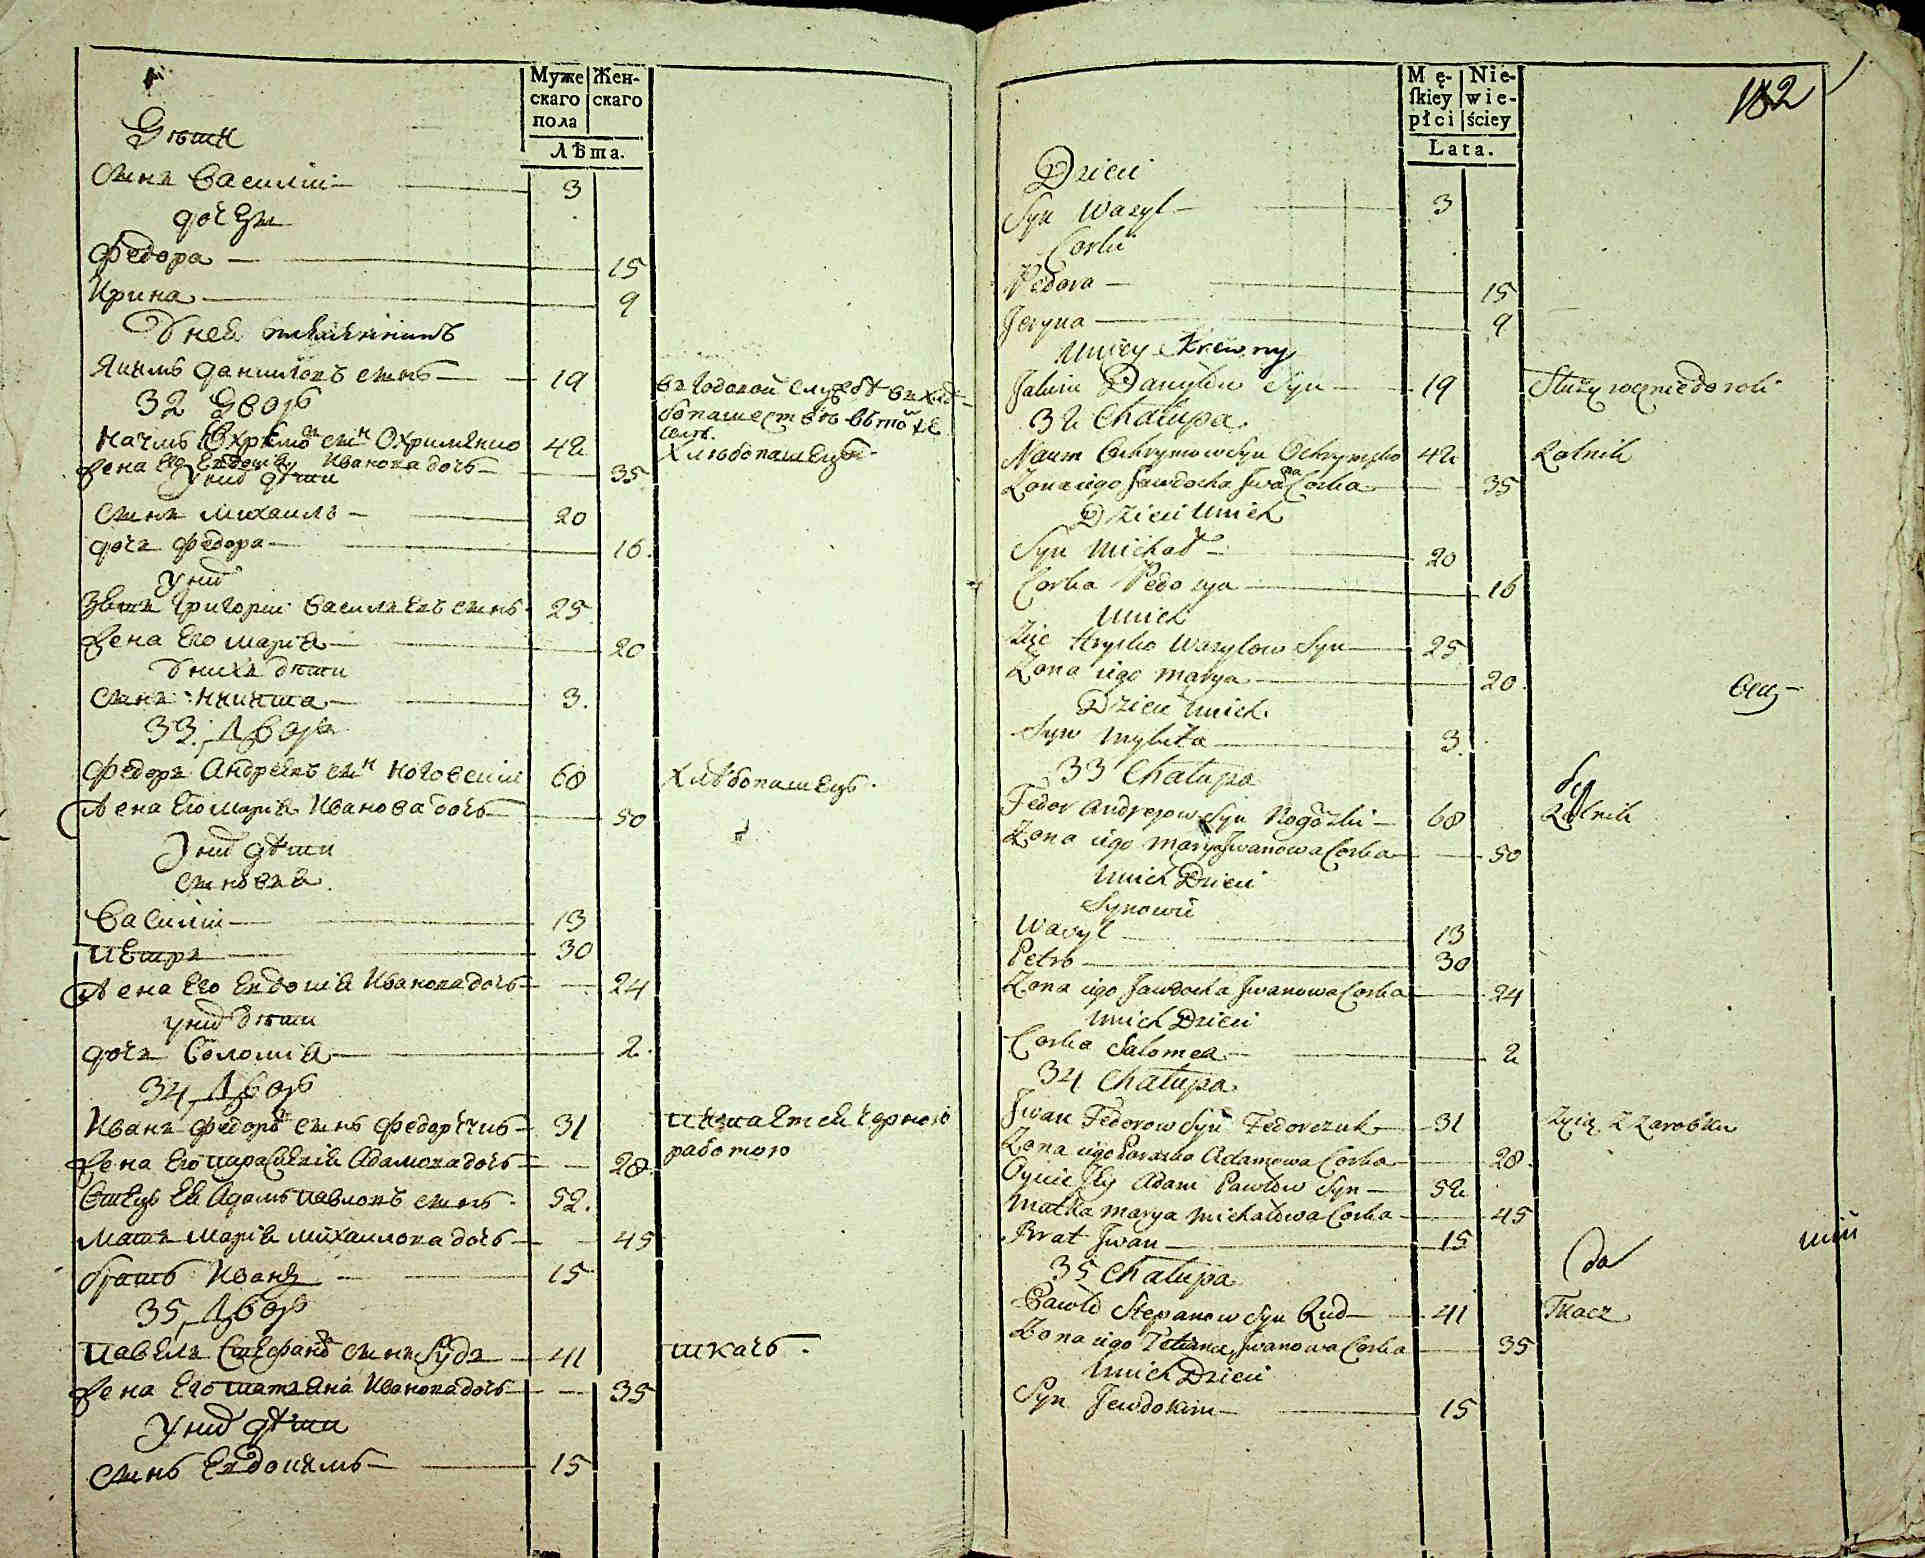 Муже Жен-
скаго скаго
пола
Лѣта.
Дѣти
Сынъ Василий 3
дочери
Федора 15
Ирина 9
Якимъ Даниловъ сынъ 19
въ годовой службѣ въ хлѣ-
бопашествѣ въ той же
селѣ.
32 Дворъ
Наумъ Охримовъ сынъ Охрименко 42 хлѣбопашецъ
жена его Евдокия Иванова дочь 35
У них дѣти
Сынъ Михаилъ 20
дочь Федора 16
У них
Зять Григорий Васильевъ сынъ 25
жена его Мария 20
У нихъ дѣти
Сынъ Никита 3.
33. Дворъ
Федоръ Андреевъ сынъ Ноговский 68 хлѣбопашецъ.
Жена его Мария Иванова дочь 50
У них дѣти
сыновья
Василий 13
Петръ 30
Жена его Евдокия Иванова дочь 24
У них дѣти
дочь Соломия 2.
34 Дворъ
Иванъ Федоровъ сынъ Федорчукъ 31 питается черною
работою
жена его Параскевия Адамова дочь 28.
Отецъ ей Адамъ Павловъ сынъ 52.
Мать Мария Михайлова дочь 45
братъ Иванъ 15
35 Дворъ
Павелъ Стефановъ сынъ Рудъ 41 ткачъ.
жена его Татьяна Иванова дочь 35
У них дѣти
сынъ Евдокимъ 15
Mę- Nie-
ſkiey wie-
płci ściey
Lata.
182
Dzieci
Syn Wasyl 3
Corki
Fedora 15
Jeryna 9
Uniey Krewny
Jakim Danyłow Syn 19 Służy roczniedoroli
32 Chałupa
Naum Ochrymow Syn Ochrymenko 42 Rolnik
Zona iego Jawdocha Iwanowa Corka 35
Dzieci Unich
Syn Michał 20
Corka Fedosya 16
Unich
Zięc Hryśko Wasylow Syn 25
Zona iego Marya 20.
Dzieci Unich.
Syn Mykita 3
33 Chałupa
Fedor Andrejow Syn Nogoski 68 Rolnik
Zona iego Marya Iwanowa Corka 50
Unich Dzieci
Synowie
Wasyl 13
Petro 30
Zona iego Jawdocha Iwanowa Corka 24
Unich Dzieci
Corka Salomea 2
34 Chałupa
Iwan Fedorow Syn Fedorczuk 31 Zyie z Zarobku
Zona iego Paraska Adamowa Corka 28
Oyciec Jey Adam Pawłow Syn 52
Matka Marya Michałowa Corka 45
Brat Iwan 15
35 Chałupa
Pawło Stepanow Syn Rud 41 Tkacz
Zona iego Tetiana Iwanowa Corka 35
Unich Dzieci
Syn Jewdokim 15